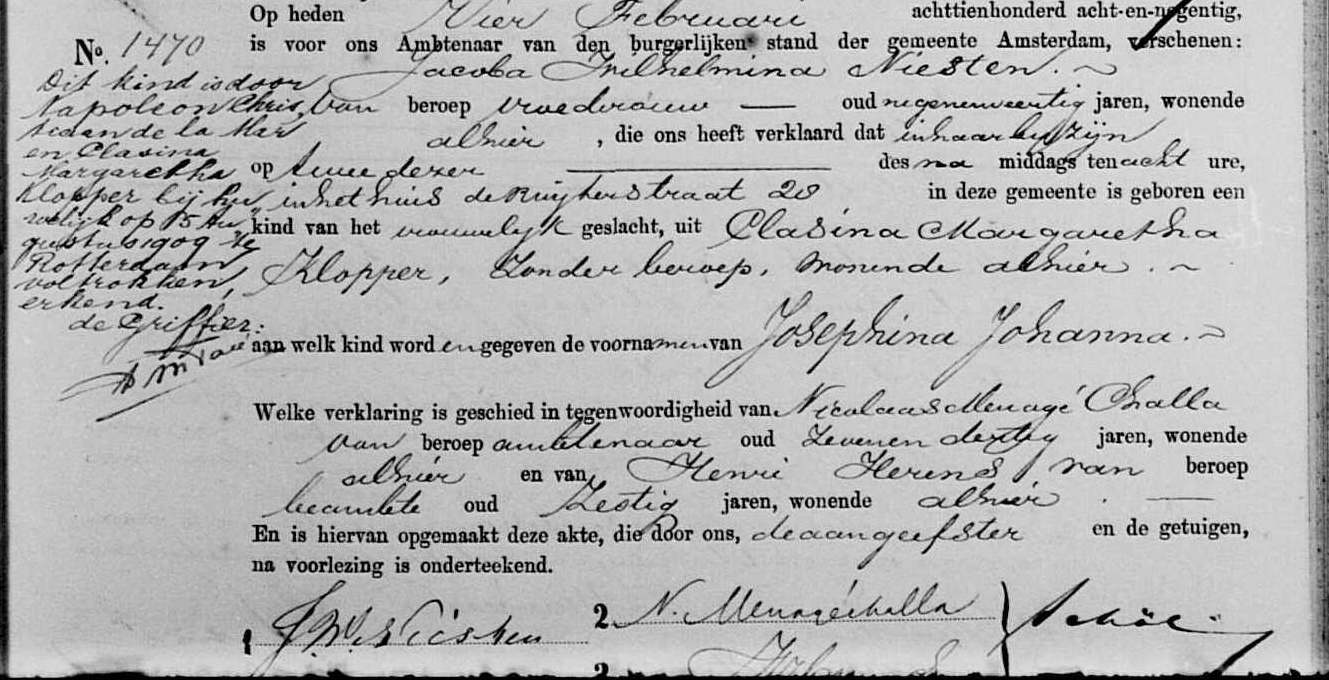 Op heden Vier Februari achttienhonderd acht-en-negentig,
No. 1470
is voor ons Ambtenaar van den burgerlijken stand der gemeente Amsterdam, verschenen:
Jacoba Wilhelmina Niesten.
van beroep vroedvrouw — oud negenenveertig jaren, wonende
alhier , die ons heeft verklaard dat in haar byzijn
op twee dezer des na middags ten acht ure,
in het huis de Ruyterstraat 28 in deze gemeente is geboren een
kind van het vrouwelyk geslacht, uit Clasina Margaretha
Klopper, zonder beroep, wonende alhier.
aan welk kind worden gegeven de voornamen van Josephina Johanna.
Welke verklaring is geschied in tegenwoordigheid van Nicolaas Menagé Challa
van beroep ambtenaar oud zevenendertig jaren, wonende
alhier en van Henri Herens van beroep
beambte oud zestig jaren, wonende alhier. —
En is hiervan opgemaakt deze akte, die door ons, de aangeefster en de getuigen,
na voorlezing is onderteekend.
1 J. W. Niesten 2 N. Menagé Challa
3
Dit kind is door
Napoleon Chris
tiaan de la Mar
en Clasina
Margaretha
Klopper bij hu
welijk op 15 Au
gustus 1909 te
Rotterdam
voltrokken,
erkend.
de Griffier: